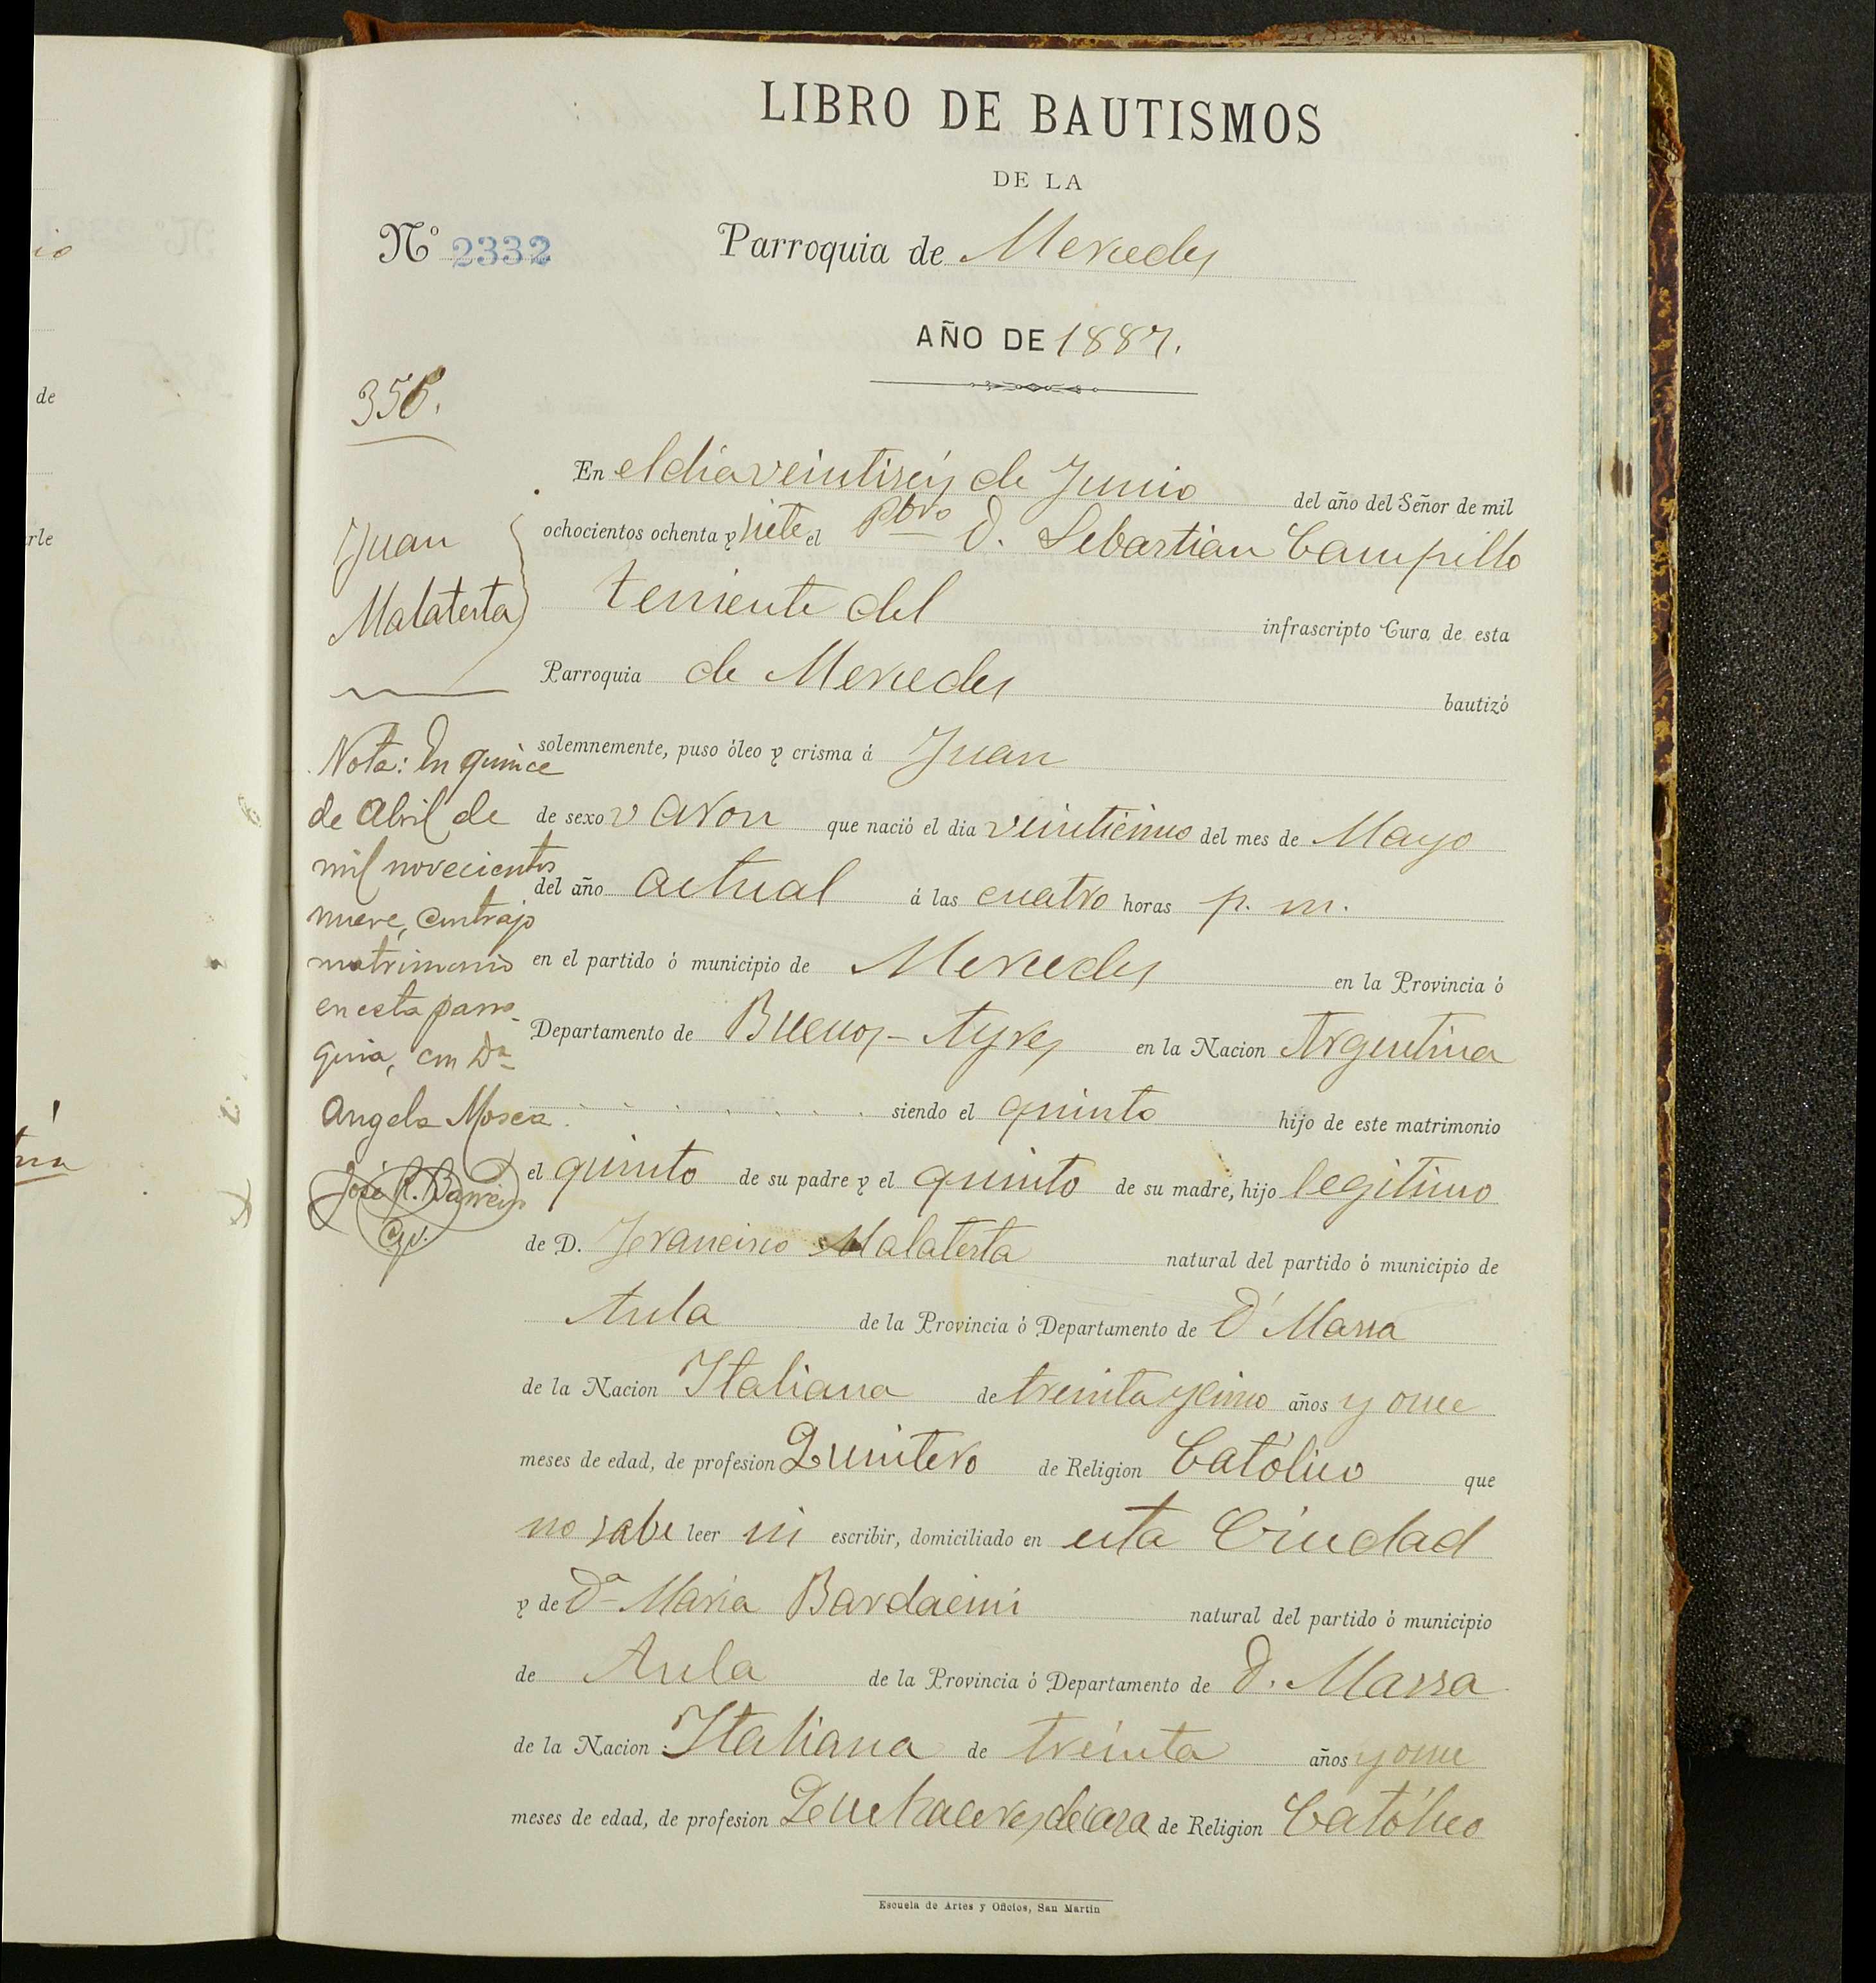 LIBRO DE BAUTISMOS
DE LA
Nº 2332 Parroquia de Mercedes
AÑO DE 1887.
356.
En el dia veintiseis de Junio del año del Señor de mil
ochocientos ochenta y siete el Pbro D. Sebastian Campillo
teniente del infrascripto Cura de esta
Parroquia de Mercedes bautizó
solemnemente, puso óleo y crisma á Juan
de sexo varon que nació el dia veinticinco del mes de Mayo
del año actual á las cuatro horas p. m.
en el partido ó municipio de Mercedes en la Provincia ó
Departamento de Buenos-Ayres en la Nacion Argentina
siendo el quinto hijo de este matrimonio
el quinto de su padre y el quinto de su madre, hijo legitimo
de D. Francisco Malatesta natural del partido ó municipio de
Aula de la Provincia ó Departamento de D. Massa
de la Nacion Italiana de treinta y cinco años y once
meses de edad, de profesion Quintero de Religion Católico que
no sabe leer ni escribir, domiciliado en esta Ciudad
y de Da Maria Bardacini natural del partido ó municipio
de Aula de la Provincia ó Departamento de D. Massa
de la Nacion Italiana de treinta años y once
meses de edad, de profesion Quehaceres de casa de Religion Católico
Escuela de Artes y Oficios, San Martin
Juan
Malatesta
Nota: En quince
de Abril de
mil novecientos
nueve, contrajo
matrimonio
en esta parro-
quia, con Da
Angela Mosca.
José R. Barreiro
io
de
rle